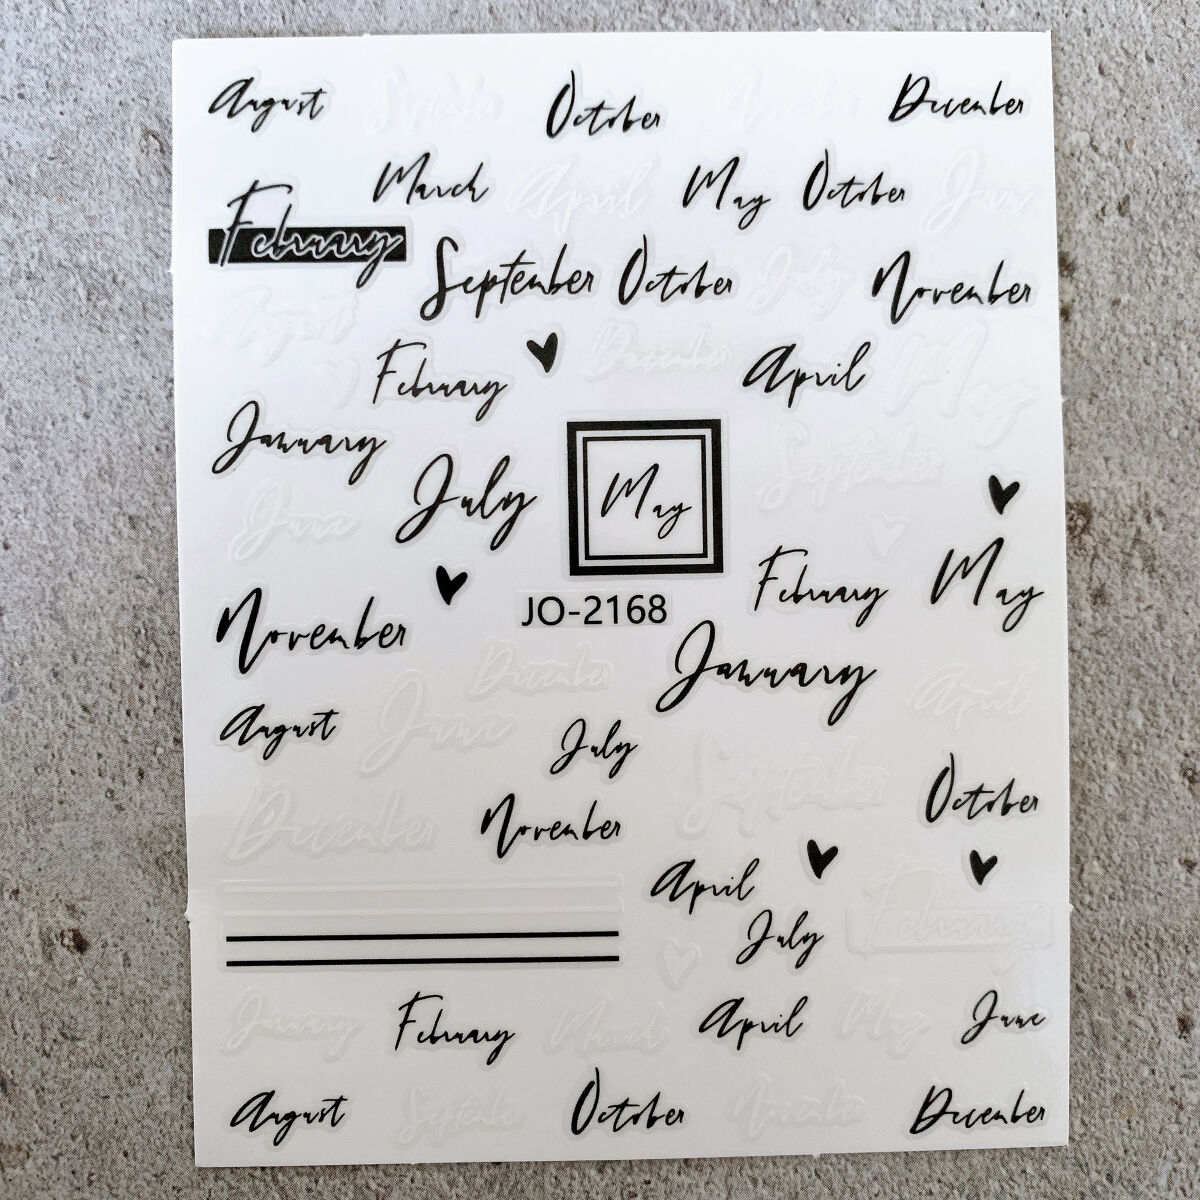 August September October November December
March April May October June
February
September October July November
August
February December April May
January September
July May
June
February May
November JO-2168
January
December April
August June July
September October
December November
April
July February
January February March April May June
August September October November December